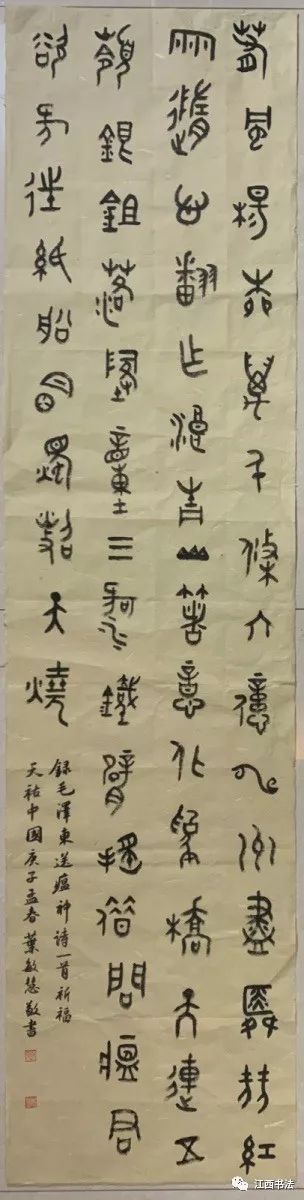 春風楊柳萬千條六億神州盡舜堯紅
雨隨心翻作浪青山著意化為橋天連五
嶺銀鉏落地動三河鐵臂搖借問瘟君
欲何往紙船明燭照天燒
録毛澤東送瘟神詩一首祈福
天祐中國庚子孟春葉敏慧敬書
江西书法